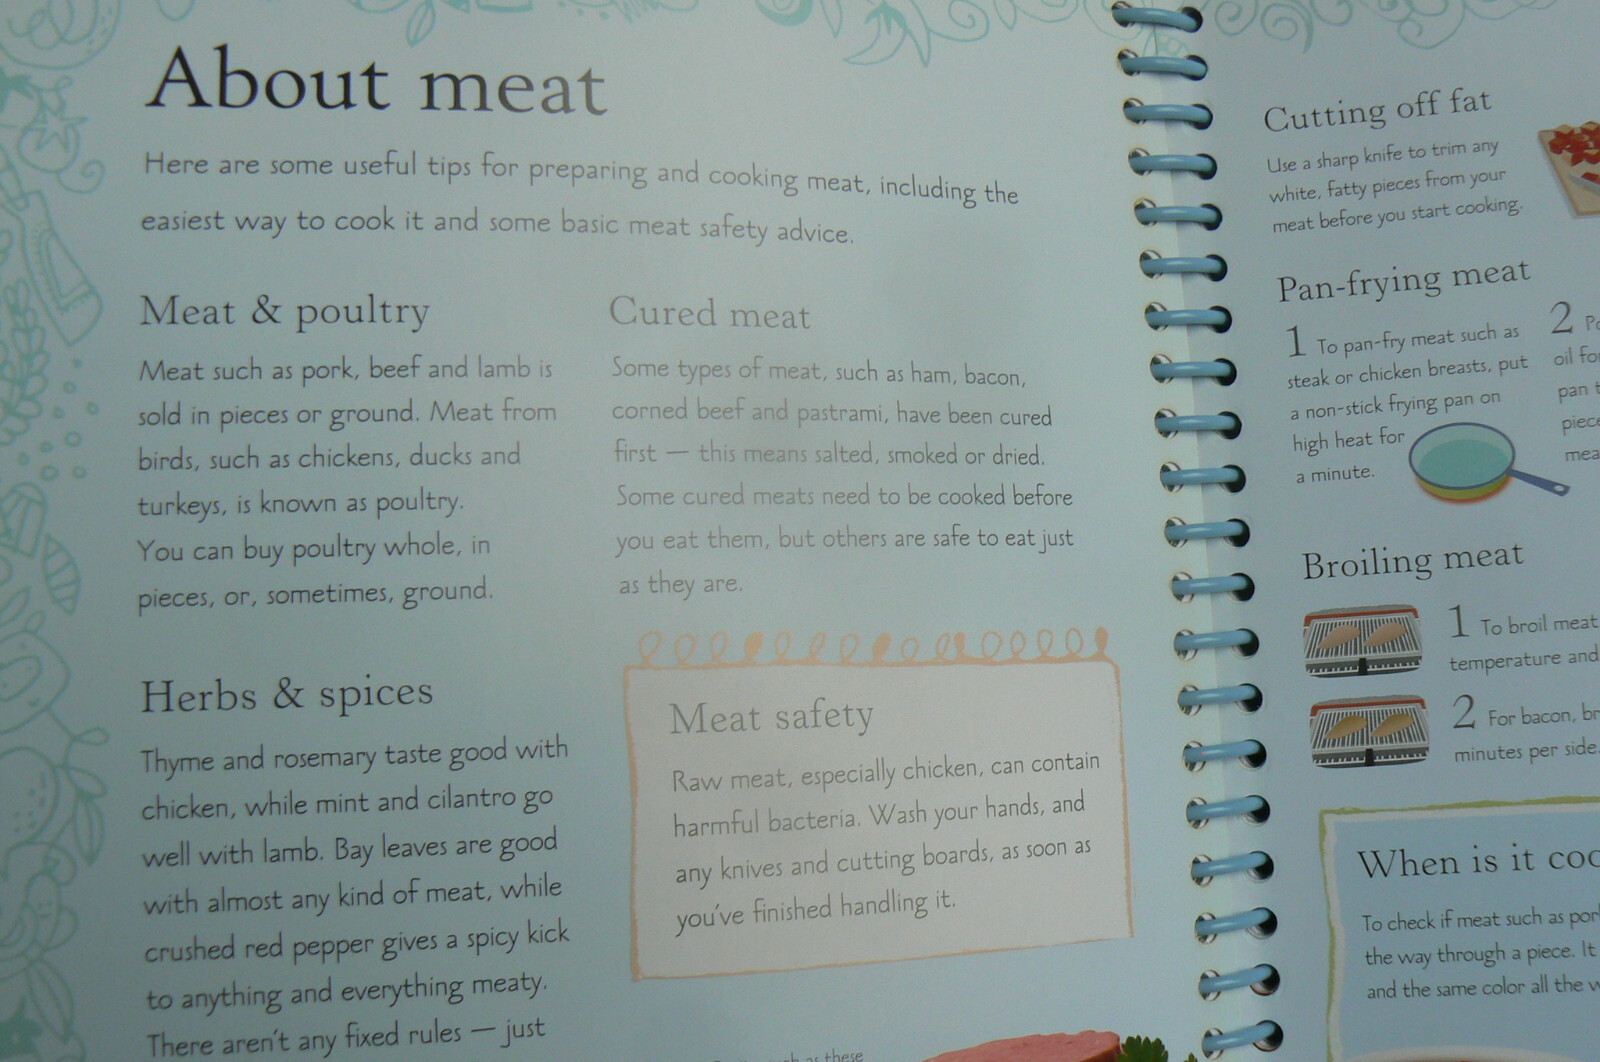 About meat
Here are some useful tips for preparing and cooking meat, including the
easiest way to cook it and some basic meat safety advice.
Meat & poultry
Meat such as pork, beef and lamb is
sold in pieces or ground. Meat from
birds, such as chickens, ducks and
turkeys, is known as poultry.
You can buy poultry whole, in
pieces, or, sometimes, ground.
Herbs & spices
Thyme and rosemary taste good with
chicken, while mint and cilantro go
well with lamb. Bay leaves are good
with almost any kind of meat, while
crushed red pepper gives a spicy kick
to anything and everything meaty.
There aren't any fixed rules — just
Cured meat
Some types of meat, such as ham, bacon,
corned beef and pastrami, have been cured
first — this means salted, smoked or dried.
Some cured meats need to be cooked before
you eat them, but others are safe to eat just
as they are.
Meat safety
Raw meat, especially chicken, can contain
harmful bacteria. Wash your hands, and
any knives and cutting boards, as soon as
you've finished handling it.
as these
Cutting off fat
Use a sharp knife to trim any
white, fatty pieces from your
meat before you start cooking.
Pan-frying meat
1 To pan-fry meat such as
steak or chicken breasts, put
a non-stick frying pan on
high heat for
a minute.
2
oil
pan
Broiling meat
1 To broil meat
temperature and
2 For bacon,
minutes per side.
When is it
To check if meat such as
the way through a piece. It
and the same color all the